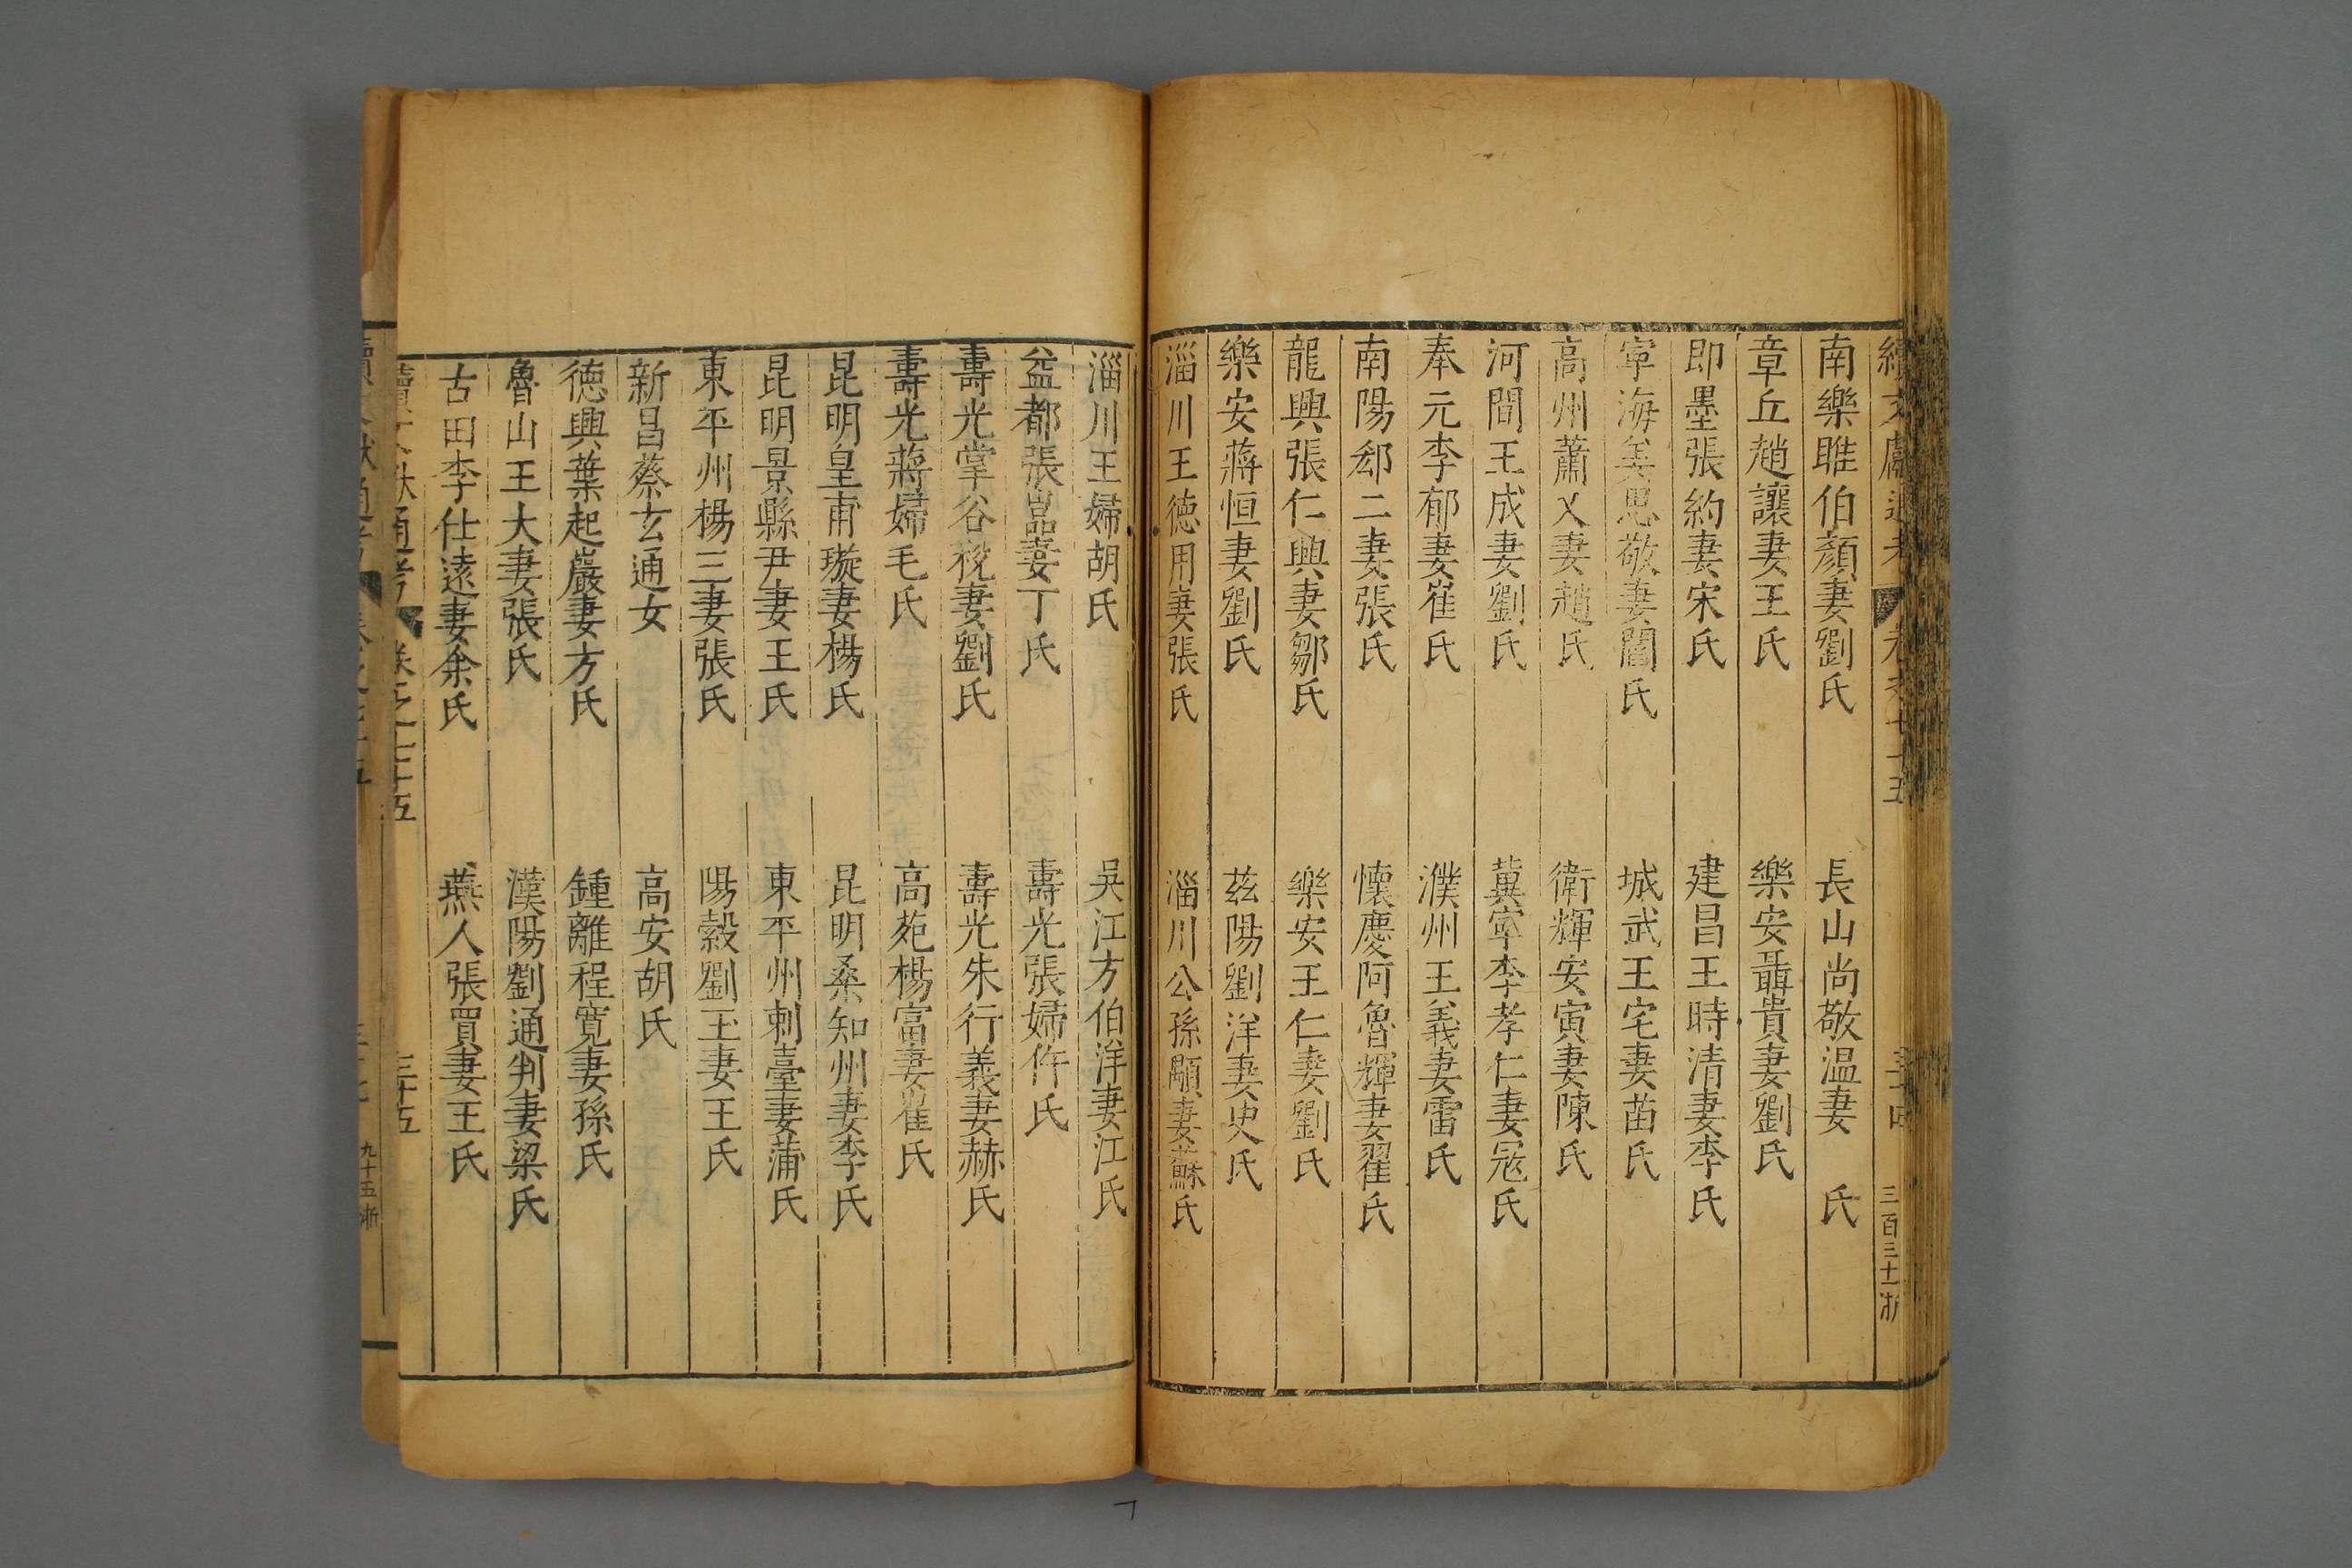 續文獻通考 卷之七十五 三十四 三百三十一浙
南樂睢伯顏妻劉氏 長山尚敬溫妻 氏
章丘趙讓妻王氏 樂安聶貴妻劉氏
即墨張約妻宋氏 建昌王時清妻李氏
寧海姜思敬妻閻氏 城武王宅妻苗氏
高州蕭乂妻趙氏 衛輝安寅妻陳氏
河間王成妻劉氏 冀寧李孝仁妻冦氏
奉元李郁妻崔氏 濮州王義妻雷氏
南陽郄二妻張氏 懷慶阿魯輝妻翟氏
龍興張仁興妻鄒氏 樂安王仁妻劉氏
樂安蔣恒妻劉氏 茲陽劉洋妻史氏
淄川王德用妻張氏 淄川公孫顒妻蘇氏
淄川王婦胡氏 吳江方伯洋妻江氏
益都張嵓妻丁氏 壽光張婦仵氏
壽光掌谷稅妻劉氏 壽光朱行義妻赫氏
壽光蔣婦毛氏 高苑楊富妻翟氏
昆明皇甫璇妻楊氏 昆明桑知州妻李氏
昆明景縣尹妻王氏 東平州刺臺妻蒲氏
東平州楊三妻張氏 陽穀劉玉妻王氏
新昌蔡玄通女 高安胡氏
德興葉起巖妻方氏 鍾離程寬妻孫氏
魯山王大妻張氏 漢陽劉通判妻梁氏
古田李仕遠妻余氏 燕人張買妻王氏
續文獻通考 卷之七十五 三十五
九十五浙